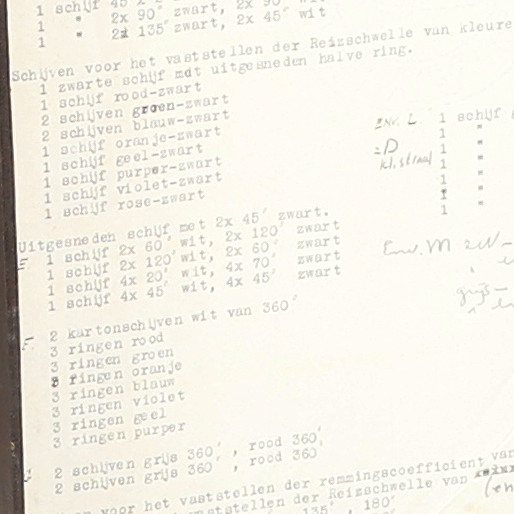 1 schijf 45 x 2
1 " 2x 90° zwart, 2x 90
1 " 2x 135° zwart, 2x 45° wit
Schijven voor het vaststellen der Reizschwelle van kleure
1 zwarte schijf mdt uitgesneden halve ring.
1 schijf rood-zwart
2 schijven groen-zwart
2 schijven blauw-zwart
1 schijf oranje-zwart
1 schijf geel-zwart
1 schijf purper-zwart
1 schijf violet-zwart
1 schijf rose-zwart
Env. L 1 schijf
1 "
=D 1 "
kl. straal 1 "
1 "
1 "
1 "
Uitgesneden schijf met 2x 45° zwart.
E. 1 schijf 2x 60° wit, 2x 120° zwart
1 schijf 2x 120° wit, 2x 60° zwart
1 schijf 4x 20° wit, 4x 70° zwart
1 schijf 4x 45° wit, 4x 45° zwart
Env. M
grijs-
F. 2 kartonschijven wit van 360°
3 ringen rood
3 ringen groen
3 ringen oranje
3 ringen blauw
3 ringen violet
3 ringen geel
3 ringen purper
2 schijven grijs 360°, rood 360°
2 schijven grijs 360°, rood 360
voor het vaststellen der remmingscoefficient van
vaststellen der Reizschwelle van
135°, 180°